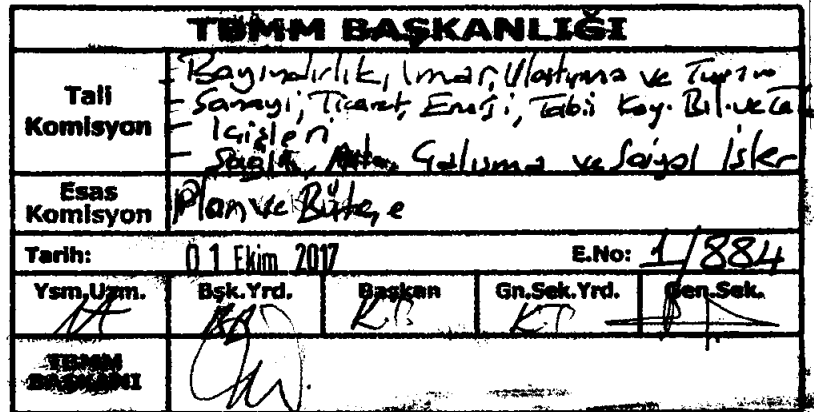 TBMM BAŞKANLIĞI
Tali Komisyon
- Bayındırlık, İmar, Ulaştırma ve Turizm
- Sanayi, Ticaret, Enerji, Tabii Kay. Bil. ve
- İçişleri
- Sağlık, Aile, Çalışma ve Sosyal İşler
Esas Komisyon
Plan ve Bütçe
Tarih: 01 Ekim 2017 E.No: 1/884
Ysm.Uzm. Bşk.Yrd. Başkan Gn.Sek.Yrd. Gen.Sek.
K.B K.T
TBMM BAŞKANI